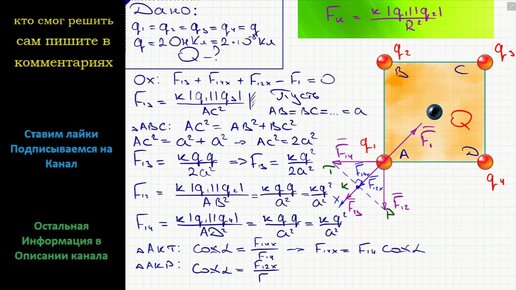 кто смог решить
сам пишите в
комментариях
Ставим лайки
Подписываемся на
Канал
Остальная
Информация в
Описании канала
Дано:
q₁ = q₂ = q₃ = q₄ = q
q = 20 нКл = 2·10⁻⁸ Кл
Q - ?
Fₖ = k|q₁||q₂| / R²
Ox: F₁₃ + F₁₄ₓ + F₁₂ₓ - F₁ = 0
F₁₃ = k|q₁||q₃| / AC² Пусть
AB = BC = ... = a
△ABC: AC² = AB² + BC²
AC² = a² + a² → AC² = 2a²
F₁₃ = kqq / 2a² ⇒ F₁₃ = kq² / 2a²
F₁₂ = k|q₁||q₂| / AB² = kqq / a² = kq² / a²
F₁₄ = k|q₁||q₄| / AD² = kqq / a² = kq² / a²
△AKT: cosα = F₁₄ₓ / F₁₄ → F₁₄ₓ = F₁₄ cosα
△AKP: cosα = F₁₂ₓ / F
q₂
q₃
B
C
Q
q₁
F₁₄
F₁
A
D
T
F₁₄ₓ
K
F₁₂ₓ
q₄
x
F₁₃
P
F₁₂